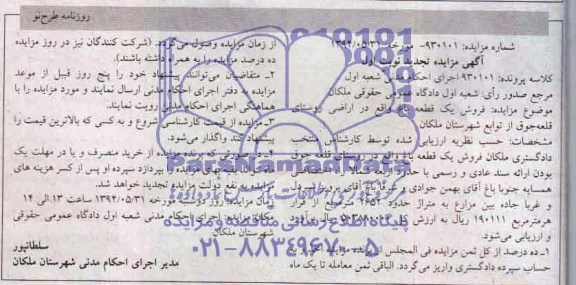 روزنامه طرح‌نو
شماره مزایده: ۹۳۰۱۰۱- مورخه ۱۳۹۴/۰۵/۳۱
آگهی مزایده تجدید نوبت اول
کلاسه پرونده: ۹۳۰۱۰۱ اجرای احکام مدنی شعبه اول
مرجع صدور رأی: شعبه اول دادگاه عمومی حقوقی ملکان
موضوع مزایده: فروش یک قطعه باغ واقع در اراضی روستای
قلعه‌جوق از توابع شهرستان ملکان
مشخصات: حسب نظریه ارزیابی شده توسط کارشناس منتخب
دادگستری ملکان فروش یک قطعه باغ واقع در روستای قلعه جوق
بودن ارائه سند عادی و رسمی با حدود
همسایه جنوبا باغ آقای بهمن جوادی و شرقا باغ آقای
و غرباً جاده بین مزارع به متراژ حدود ۲۶۵۲ مترمربع از قرار
هرمترمربع ۱۹۰۱۱۱ ریال به ارزش کلی ریال برآورد
و ارزیابی می‌شود.
۱- ده درصد از کل ثمن مزایده فی المجلس از برنده مزایده
حساب سپرده دادگستری واریز می‌گردد. الباقی ثمن معامله تا یک ماه
از زمان مزایده وصول می‌گردد. (شرکت کنندگان نیز در روز مزایده
ده درصد مزایده را به همراه داشته باشند).
۲- متقاضیان می‌توانند پیشنهاد خود را پنج روز قبل از موعد
مزایده به دفتر اجرای احکام مدنی ارسال نمایند و مورد مزایده را با
هماهنگی اجرای احکام مدنی رویت نمایند.
۳- مزایده از قیمت کارشناسی شروع و به کسی که بالاترین قیمت را
پیشنهاد کند واگذار می‌شود.
۴- در صورتی که برنده مزایده از خرید منصرف و یا در مهلت یک
ماه الباقی بهای مزایده را نپردازد سپرده او پس از کسر هزینه های
مزایده به نفع دولت مزایده تجدید خواهد شد.
زمان مزایده: روز مورخه ۱۳۹۴/۰۵/۳۱ ساعت ۱۳ الی ۱۴
مکان مزایده: اجرای احکام مدنی شعبه اول دادگاه عمومی حقوقی
شهرستان ملکان
سلطانپور
مدیر اجرای احکام مدنی شهرستان ملکان
ParsNamadData
پایگاه اطلاع رسانی مناقصه و مزایده
۰۲۱-۸۸۳۴۹۶۷۰-۵